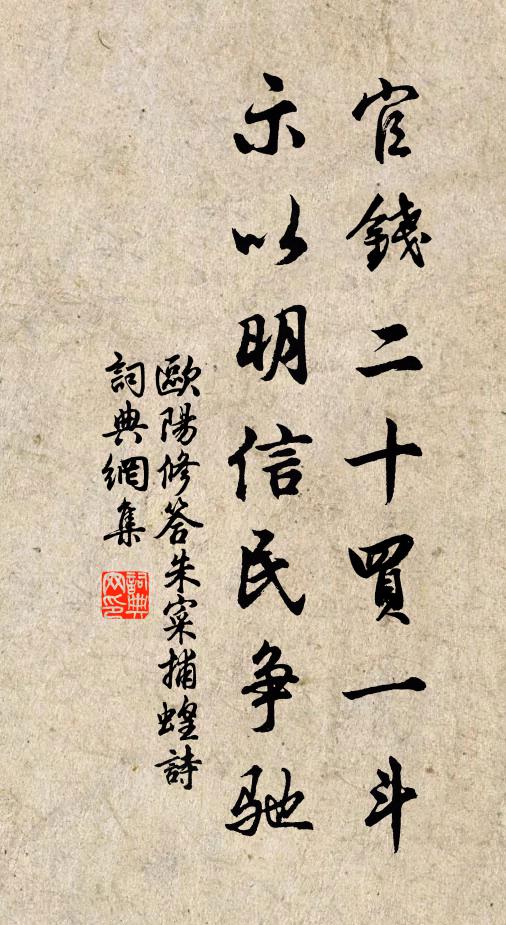 官錢二十買一斗
示以明信民争馳
歐陽修答朱寀捕蝗詩
詞典網集
詞典
网印